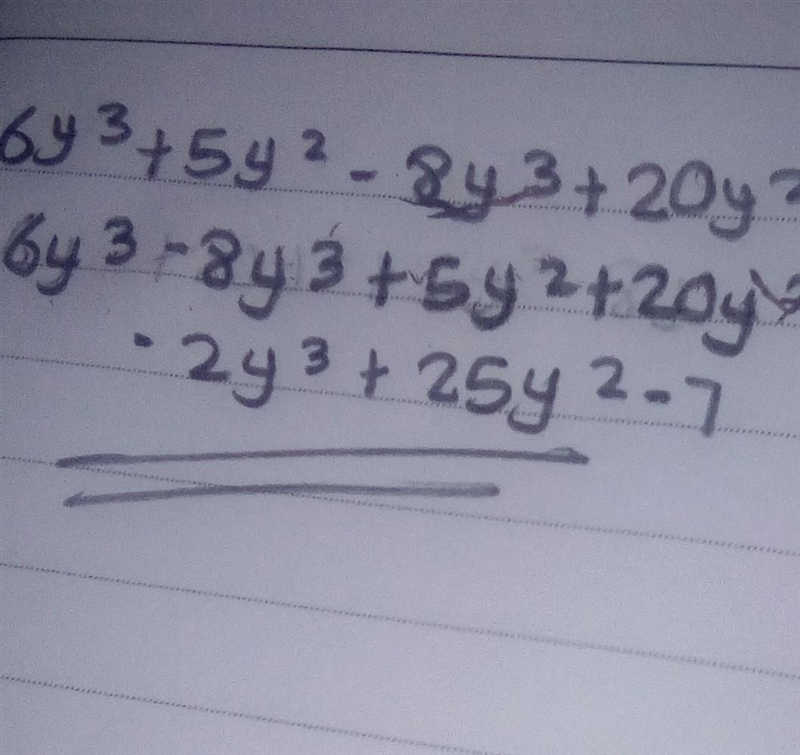 6y³+5y²-8y³+20y²
6y³-8y³+5y²+20y²
-2y³+25y²-7